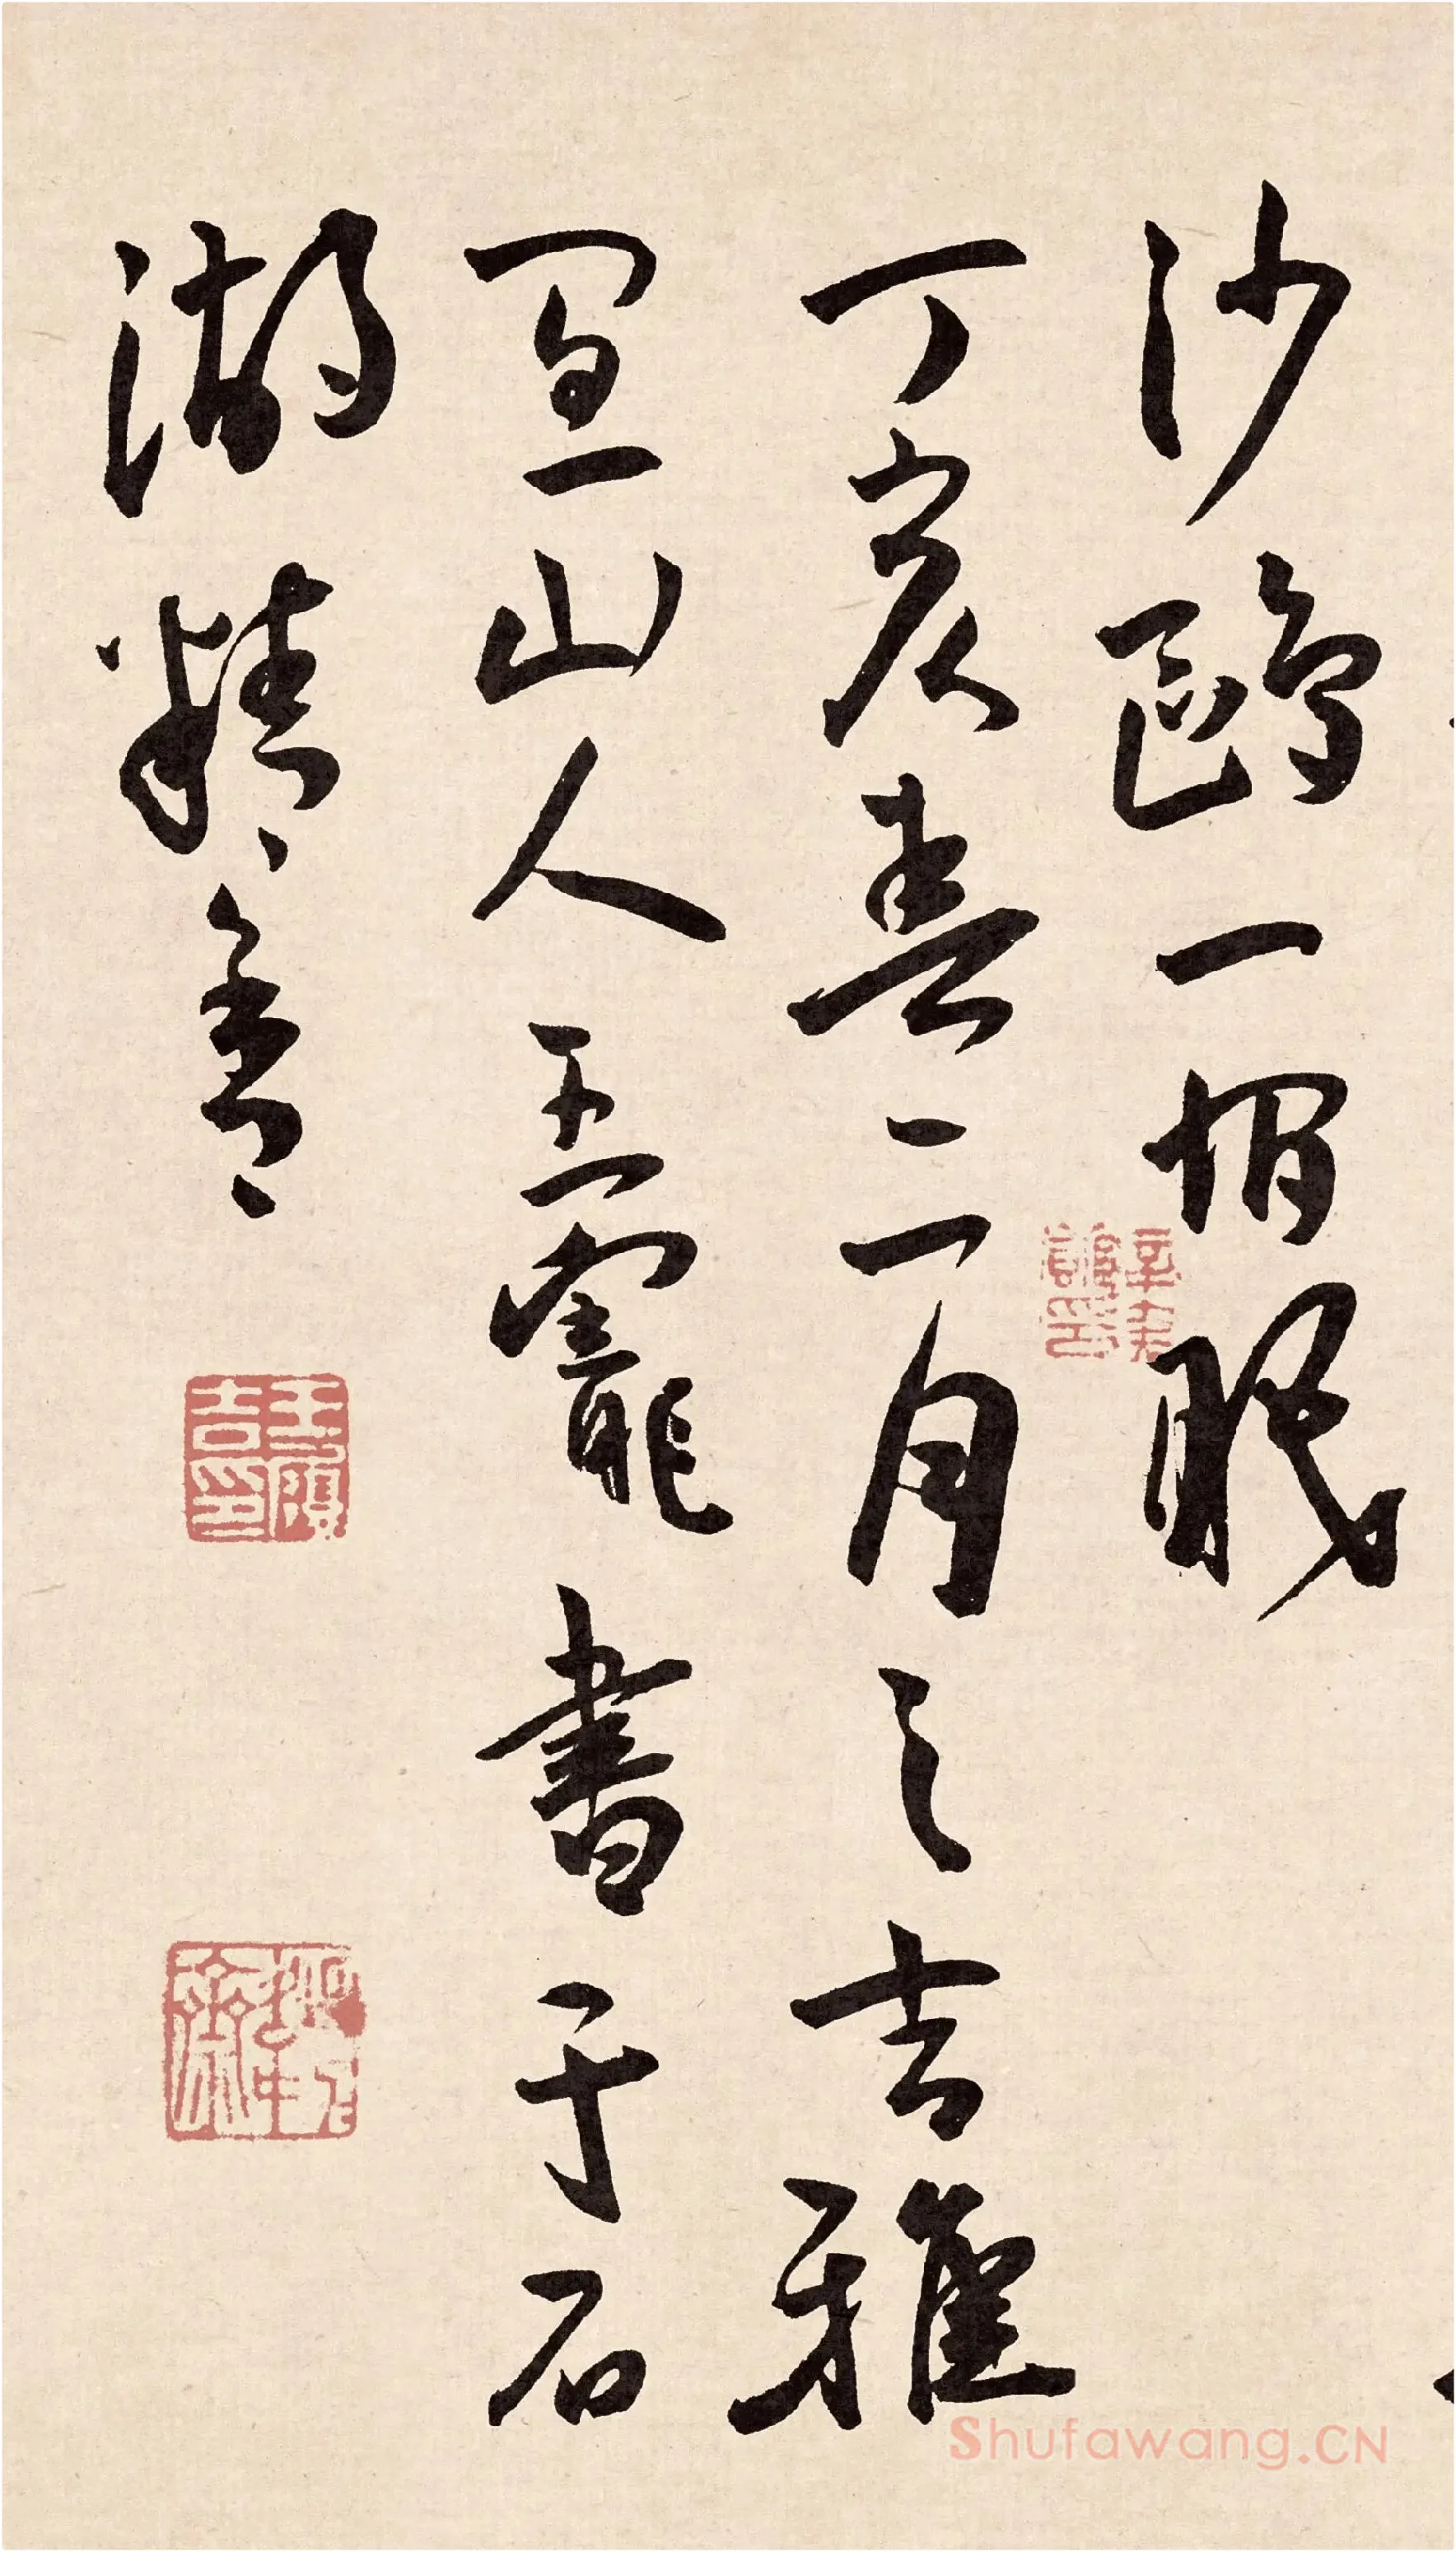 沙鷗一惆眠
丁亥春二月之吉雅
宜山人王寵書于石
湖精舍
王履
吉印
Shufawang.CN